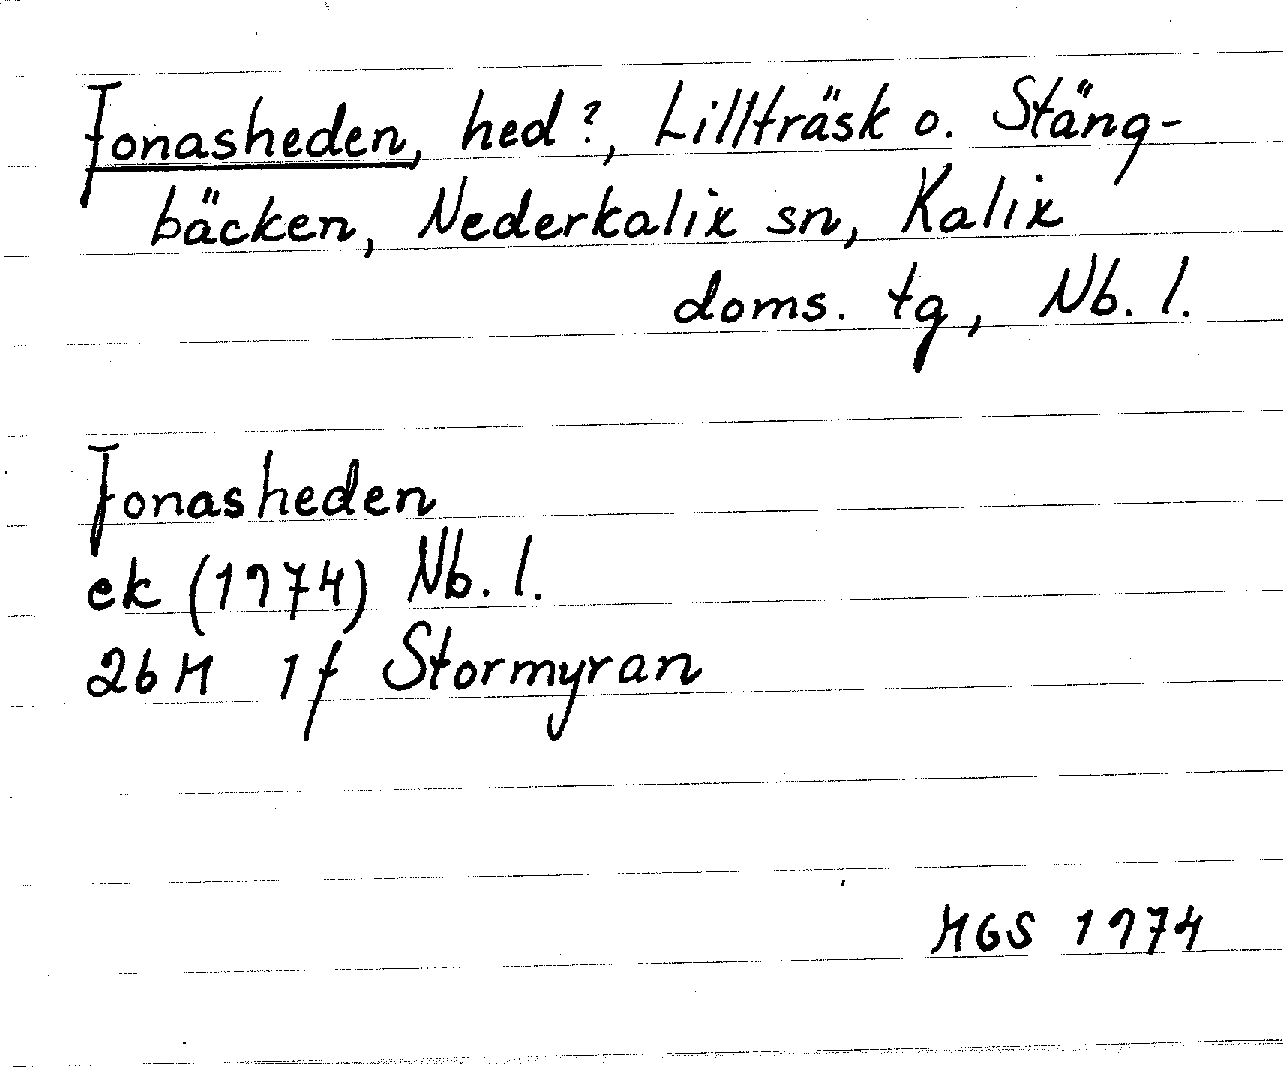 Jonasheden, hed?, Lillträsk o. Stäng-
bäcken, Nederkalix sn, Kalix
doms. tg, Nb. l.
Jonasheden
ek (1974) Nb. l.
26M 1f Stormyran
MGS 1974